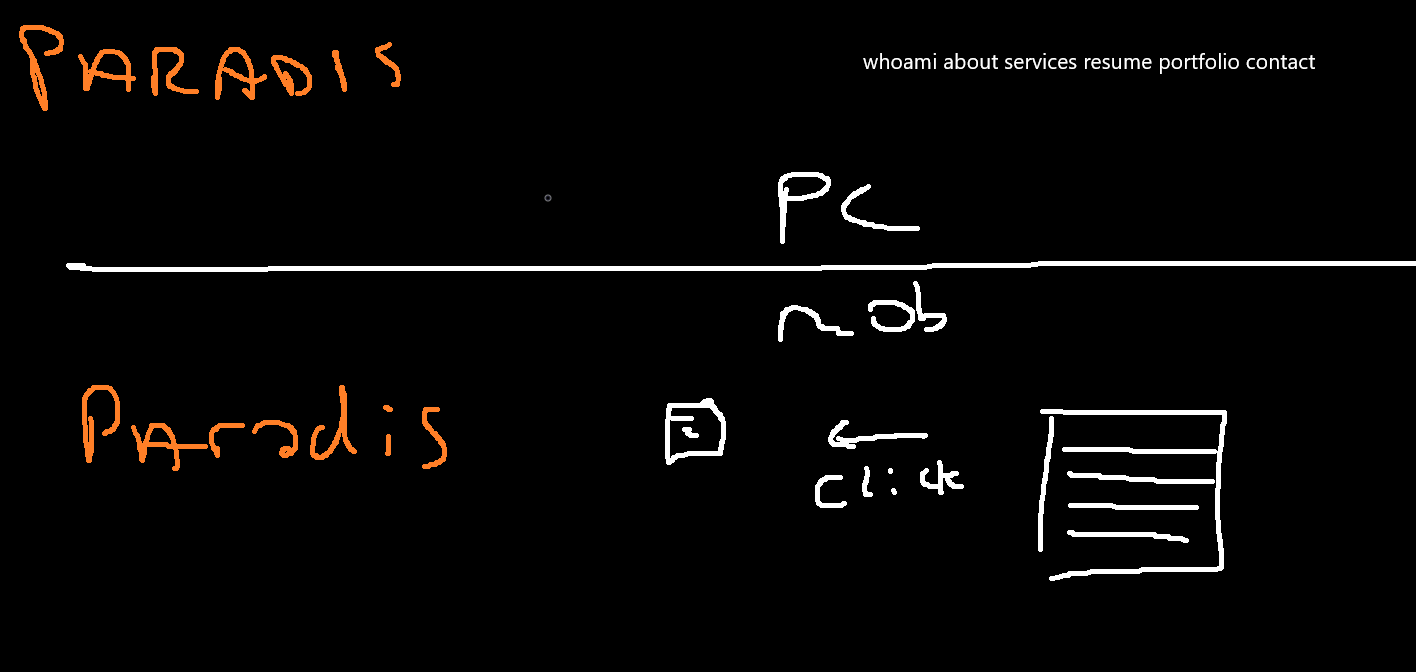 PARADIS
whoami about services resume portfolio contact
PC
mob
PAradis
click